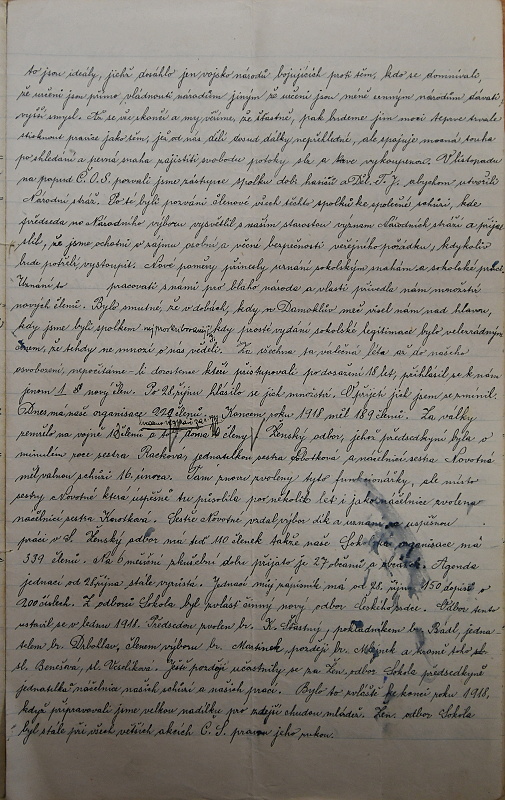 to jsou ideály, jichž dosáhlo jen vojsko národů bojujících proti těm, kdo se domnívalo,
že určeni jsou přímo vládnouti národům jiným že určeni jsou méně cenným národům dávati
vyšší smysl. Až se vše skončí a my věříme, že šťastně, pak budeme jim moci teprve trvale
stisknouti pravice jako těm, jež od nás dělí dosud dálky nepřehledné, ale spojuje mocná touha
po shledání a pevná snaha zajistiti svobodu potoky a krve vykoupenou. V listopadu
na popud Č.O.S. pozvali jsme zástupce spolku dobr. hasičů a Děl. T. J. abychom utvořili
Národní stráž. Po té byli pozváni členové všech těchto spolků ke společné schůzi, kde
předseda Národního výboru vysvětlil s naším starostou význam Národních stráží a
slib, že jsme ochotni v zájmu osobní a věcné bezpečnosti veřejného pořádku, kdykoliv
bude potřebí, vystoupit. Nové poměry přinesly uznání sokolským snahám a sokolské práci.
Uznání to pracovati s námi pro blaho národa a vlasti přivedlo nám množství
nových členů. Bylo smutné, že v dobách, kdy Damoklův meč visel nám nad hlavou,
kdy jsme byli spolkem kdy prosté vydání sokolské legitimace bylo velezrádným
činem, že tehdy ne mnozí o nás věděli. Za všechna ta válečná léta až do našeho
osvobození, nepočítáme-li dorostence kteří přistupovali po dosažení 18 let, přihlásil se k nám
jenom 1 nový člen. Po 28. říjnu hlásilo se jich množství. O přijetí jich jsem se zmínil.
Dnes má naše organisace 229 členů. Koncem roku 1918 měl 189 členů. Za války
zemřelo na vojně členů a doma členy. Ženský odbor, jehož předsedkyní byla v
minulém roce sestra Racková, jednatelkou sestra a náčelnicí sestra Novotná
měl valnou schůzi 16. února. Tam znovu zvoleny tyto funkcionářky, ale místo
sestry Novotné která úspěšně tu působila po několik let i jako náčelnice zvolena
náčelnicí sestra Karotková. Sestře Novotné vzdal výbor dík a uznání za úspěšnou
práci v S. Ženský odbor má teď 110 členek takže naše Sokolská organisace má
339 členů. Na 6 měsíční zkušební dobu přijato je 27 občanů a Agenda
jednací od 28. října stále vzrůstá. Jednací můj zápisník má od 28. října 150 dopisů o
200 číslech. Z odborů Sokola byl zvlášť činný nový odbor Českého srdce. Odbor tento
ustavil se v lednu 1918. Předsedou zvolen br. K. Šťastný, pokladníkem br. Rádl, jedna-
telem br. Drbohlav, členem výboru br. Martínek později br. Majnek a kromě toho se-
st. Benešová, st. Veselíková. Ještě později účastnily se za Žen. odbor Sokola předsedkyně
jednatelka náčelnice našich schůzí a našich prací. Bylo to zvláště ku konci roku 1918,
když připravovali jsme velkou nadílku pro zdejší chudou mládež. Žen. odbor Sokola
byl stále při všech větších akcích Č. S. pravou jeho rukou.